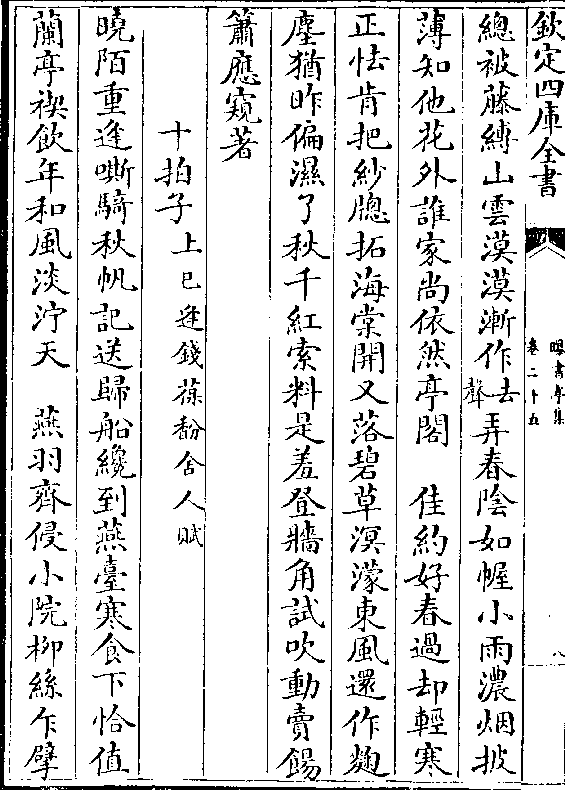 欽定四庫全書
曝書亭集
卷二十五
八
總被藤縛山雲漠漠漸作去聲弄春陰如幄小雨濃烟披
薄知他花外誰家尚依然亭閣　佳約好春過却輕寒
正怯肯把紗牕拓海棠開又落碧草溟濛東風還作麴
塵猶昨偏濕了秋千紅索料是羞登牆角試吹動賣餳
簫應窺著
十拍子上巳逢錢葆馚舍人賦
曉陌重逢嘶騎秋帆記送歸船纔到燕臺寒食下恰值
蘭亭禊飲年和風淡泞天　燕羽齊侵小院柳絲乍擘